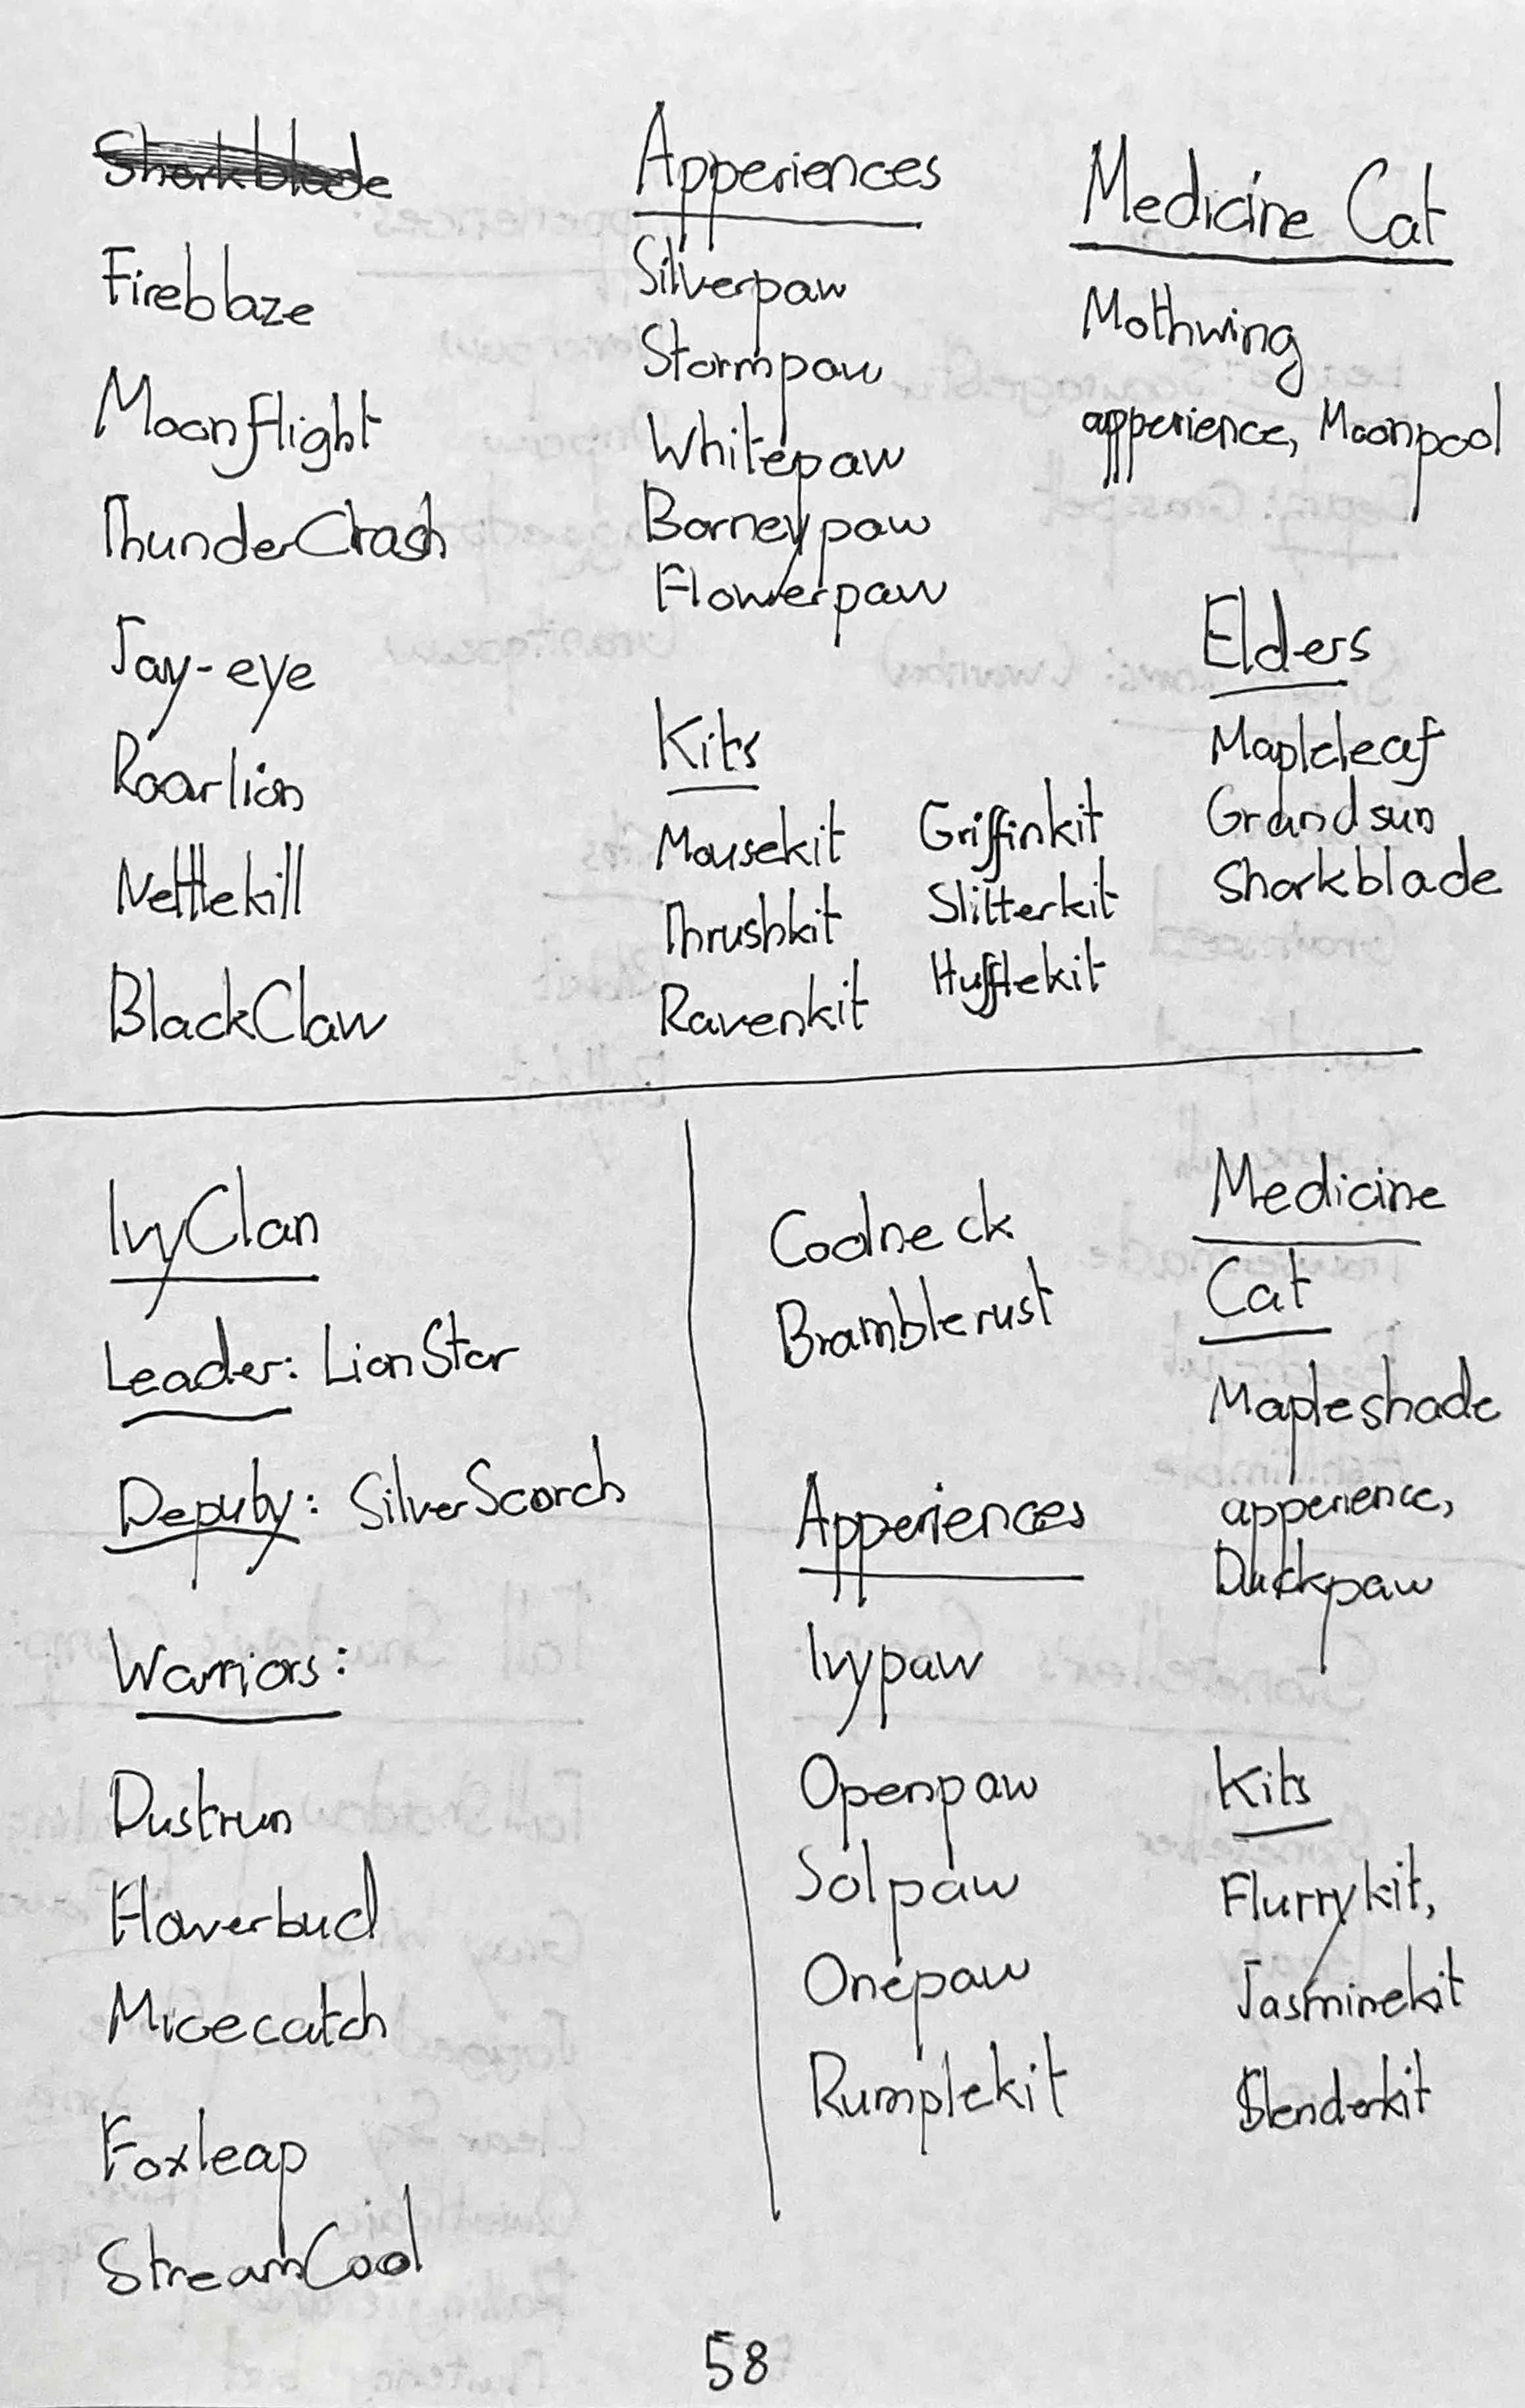 Sharkblade
Fireblaze
Moonflight
ThunderCrash
Jay-eye
Roarlion
Nettlekill
BlackClaw
Apperiences
Silverpaw
Stormpaw
Whitepaw
Barneypaw
Flowerpaw
Kits
Mousekit
Thrushkit
Ravenkit
Griffinkit
Slitterkit
Hufflekit
Medicine Cat
Mothwing
apperience, Moonpool
Elders
Mapleleaf
Grandsun
Sharkblade
IvyClan
Leader: LionStar
Deputy: SilverScorch
Warriors:
Dustrun
Flowerbud
Micecatch
Foxleap
StreamCool
Coolneck
Bramblerust
Apperiences
Ivypaw
Openpaw
Solpaw
Onepaw
Rumplekit
Medicine
Cat
Mapleshade
apperience,
Duckpaw
Kits
Flurrykit,
Jasminekit
Slenderkit
58